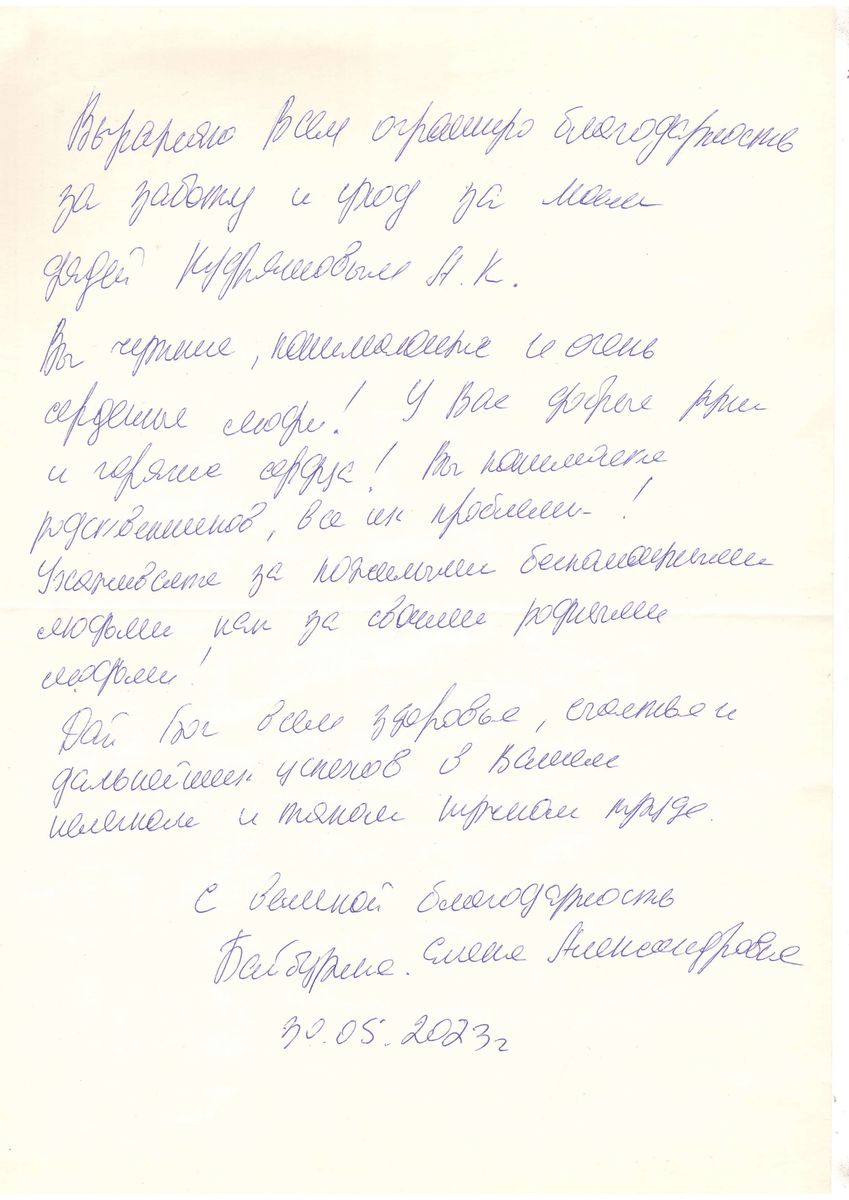 Выражаю Всем огромную благодарность
за заботу и уход за моим
дядей Кудряшовым А. К.
Вы чуткие, понимающие и очень
сердечные люди! У Вас добрые руки
и горячие сердца! Вы понимаете
родственников, все их проблемы!
Ухаживаете за пожилыми беспомощными
людьми как за своими родными
людьми!
Дай Бог всем здоровья, счастья и
дальнейших успехов в Вашем
нелегком и таком нужном труде.
С великой благодарность
Елена Александровна
30.05.2023г